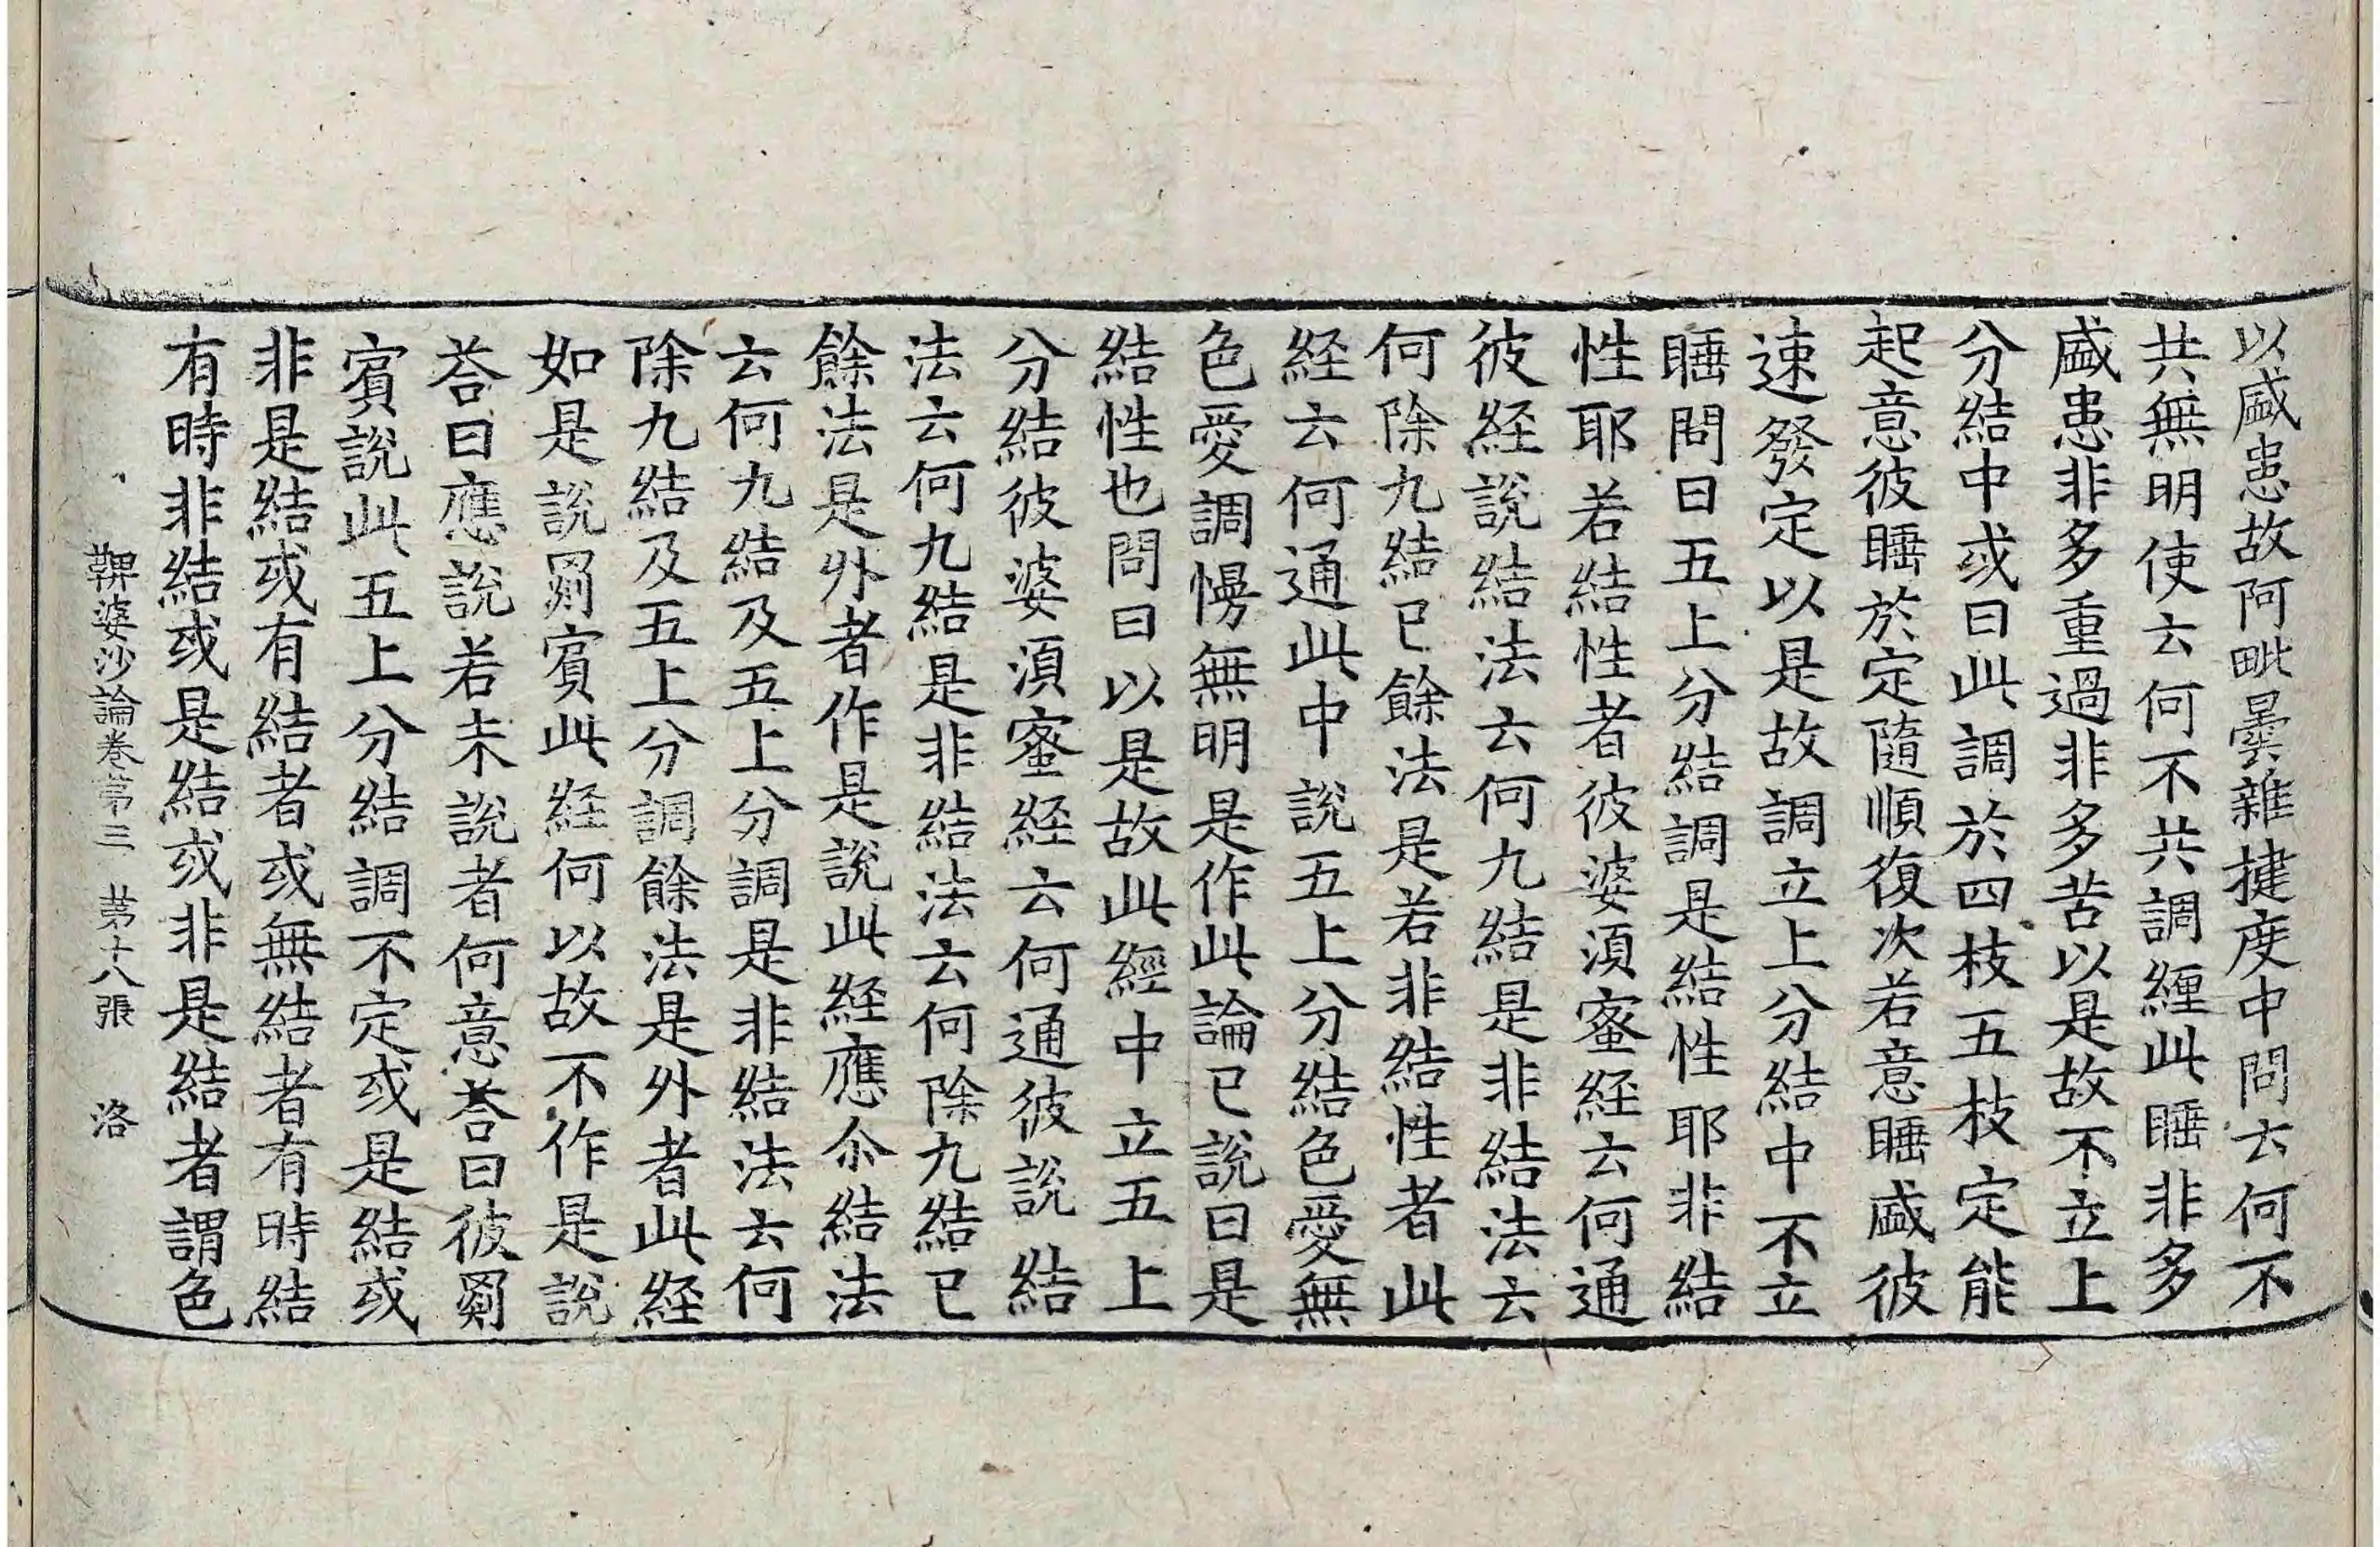 以盛恚故阿毗曇雜揵度中問云何不
共無明使云何不共調纏此睡非多
盛恚非多重過非多苦以是故不立上
分結中或曰此調於四枝五枝定能
起意彼睡於定隨順復次若意睡盛彼
速發定以是故調立上分結中不立
睡問曰五上分結調是結性耶非結
性耶若結性者彼婆須蜜経云何通
彼経說結法云何九結是非結法云
何除九結已餘法是若非結性者此
経云何通此中說五上分結色愛無
色愛調慢無明是作此論已說曰是
結性也問曰以是故此經中立五上
分結彼婆須蜜経云何通彼說結
法云何九結是非結法云何除九結已
餘法是外者作是說此経應尒結法
云何九結及五上分調是非結法云何
除九結及五上分調餘法是外者此経
如是說罽賓此経何以故不作是說
荅曰應說若未說者何意荅曰彼罽
賓說此五上分結調不定或是結或
非是結或有結者或無結者有時結
有時非結或是結或非是結者謂色
鞞婆沙論卷苐三 苐十八張 洛